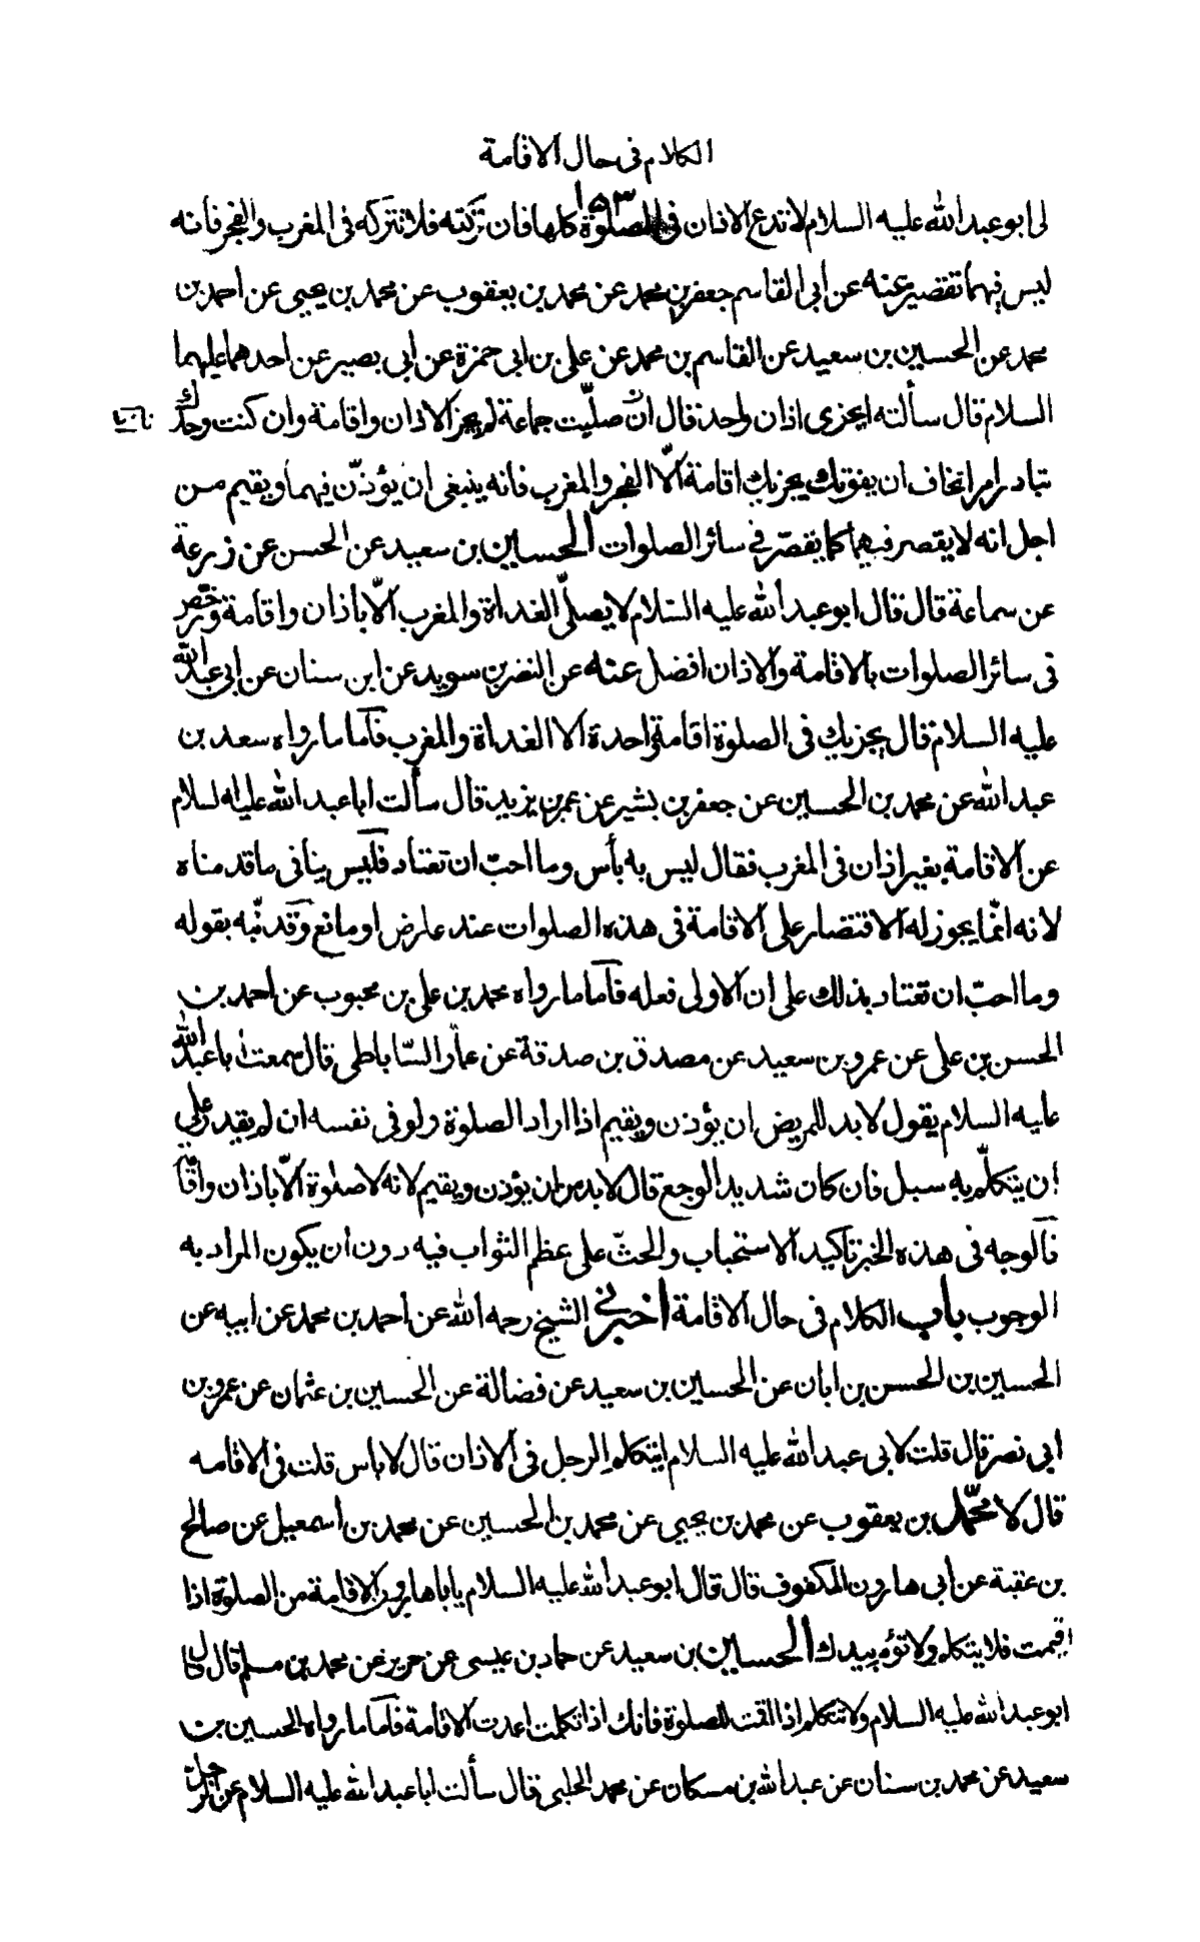 الكلام فى حال الاقامة
١٥٣
لى ابو عبد الله عليه السلام لا تدع الاذان فى الصلوة كلها فان تركته فلا تتركه فى المغرب والفجر فانه
ليس فيهما تقصير عنه عن ابى القاسم جعفر بن محمد عن محمد بن يعقوب عن محمد بن يحيى عن احمد بن
محمد عن الحسين بن سعيد عن القاسم بن محمد عن على بن ابى حمزة عن ابى بصير عن احدهما عليهما
السلام قال سألته ايجزى اذان واحد قال ان صليّت جماعة لم يجز الا اذان واقامة وان كنت وحدك
تبادر امرا تخاف ان يفوتك يجزيك اقامة الّا الفجر والمغرب فانه ينبغى ان يؤذّن فيهما ويقيم من
اجل انه لا يقصر فيهما كما يقصّر في سائر الصلوات الحسين بن سعيد عن الحسن عن زرعة
عن سماعة قال قال ابو عبد الله عليه السّلام لا يصلّى الغداة والمغرب الّا باذان واقامة ورخّص
فى سائر الصلوات بالاقامة والاذان افضل عنه عن النضر بن سويد عن ابن سنان عن ابى عبد الله
عليه السلام قال يجزيك فى الصلوة اقامة واحدة الا الغداة والمغرب فآما ما رواه سعد بن
عبد الله عن محمد بن الحسين عن جعفر بن بشير عن عمر بن يزيد قال سألت ابا عبد الله عليه السلام
عن الاقامة بغير اذان فى المغرب فقال ليس به بأس وما احبّ ان تعتاد فليس ينافى ما قدمناه
لانه انّما يجوز له الاقتصار على الاقامة فى هذه الصلوات عند عارض او مانع وقد نبّه بقوله
وما احبّ ان تعتاد بذلك على ان الاولى فعله فآما ما رواه محمد بن على بن محبوب عن احمد بن
الحسن بن على عن عمرو بن سعيد عن مصدق بن صدقة عن عمار السّاباطى قال سمعت ابا عبد الله
عليه السلام يقول لا بد للمريض ان يؤذن ويقيم اذا اراد الصلوة ولو فى نفسه ان لم يقدر على
ان يتكلّم به سبل فان كان شديد الوجع قال لا بد من ان يؤذن ويقيم لانه لا صلوة الّا باذان واقا
فآلوجه فى هذه الخبر تآكيد الاستحباب والحثّ على عظم الثواب فيه دون ان يكون المراد به
الوجوب باب الكلام فى حال الاقامة اخبرنى الشيخ رحمه الله عن احمد بن محمد عن ابيه عن
الحسين بن الحسن بن ابان عن الحسين بن سعيد عن فضالة عن الحسين بن عثمان عن عمرو بن
ابى نصر قال قلت لابى عبد الله عليه السلام ايتكلم الرجل فى الاذان قال لا باس قلت فى الاقامه
قال لا محمّد بن يعقوب عن محمد بن يحيى عن محمد بن الحسين عن محمد بن اسمعيل عن صالح
بن عقبة عن ابى هارون المكفوف قال قال ابو عبد الله عليه السلام يا با هارون الاقامة من الصلوة اذا
اقيمت فلا يتكلم ولا تؤم بيدك الحسين بن سعيد عن حماد بن عيسى عن حريز عن محمد بن مسلم قال قال
ابو عبد الله عليه السلام ولا تتكلم اذا اقمت للصلوة فانك اذا تكلمت اعدت الاقامة فآما ما رواه الحسين بن
سعيد عن محمد بن سنان عن عبد الله بن مسكان عن محمد الحلبى قال سألت ابا عبد الله عليه السلام عن الرجل